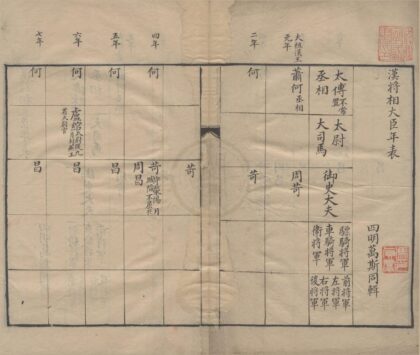 漢將相大臣年表
四明萬斯同輯
太傅不常置
丞相
太尉
大司馬
御史大夫
驃騎將軍
車騎將軍
衛將軍
前將軍
左將軍
右將軍
後將軍
太祖漢王
元年
蕭何丞相
周苛
二年
何
苛
苛
四年
何
周昌
五年
何
昌
六年
何
盧綰
昌
七年
何
昌